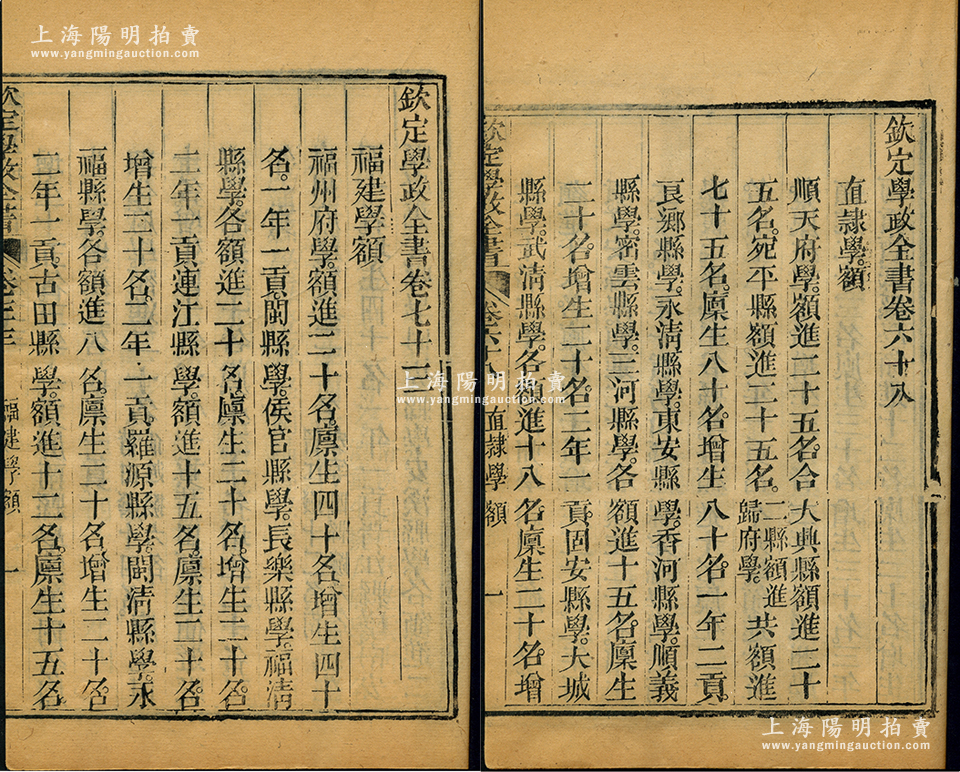 上海陽明拍賣
www.yangmingauction.com
欽定學政全書卷六十八
直隸學額
順天府學。額進二十五名。合大興縣額進二十
五名。宛平縣額進二十五名。二縣額進歸府學。共額進
七十五名。廩生八十名。增生八十名。一年二貢。
良鄉縣學。永淸縣學。東安縣學。香河縣學。順義
縣學。密雲縣學。三河縣學。各額進十五名。廩生
二十名。增生二十名。二年一貢。固安縣學。大城
縣學。武淸縣學。各額進十八名。廩生二十名。增
欽定學政全書 卷六十八 直隸學額 一
欽定學政全書卷七十三
福建學額
福州府學。額進二十名。廩生四十名。增生四十
名。一年一貢。閩縣學。侯官縣學。長樂縣學。福淸
縣學。各額進二十名。廩生二十名。增生二十名。
二年一貢。連江縣學。額進十五名。廩生二十名。
增生二十名。二年一貢。羅源縣學。閩淸縣學。永
福縣學。各額進八名。廩生二十名。增生二十名。
二年一貢。古田縣學。額進十二名。廩生十五名
欽定學政全書 福建學額 一
上海陽明拍賣
www.yangmingauction.com
上海陽明拍賣
www.yangmingauction.com